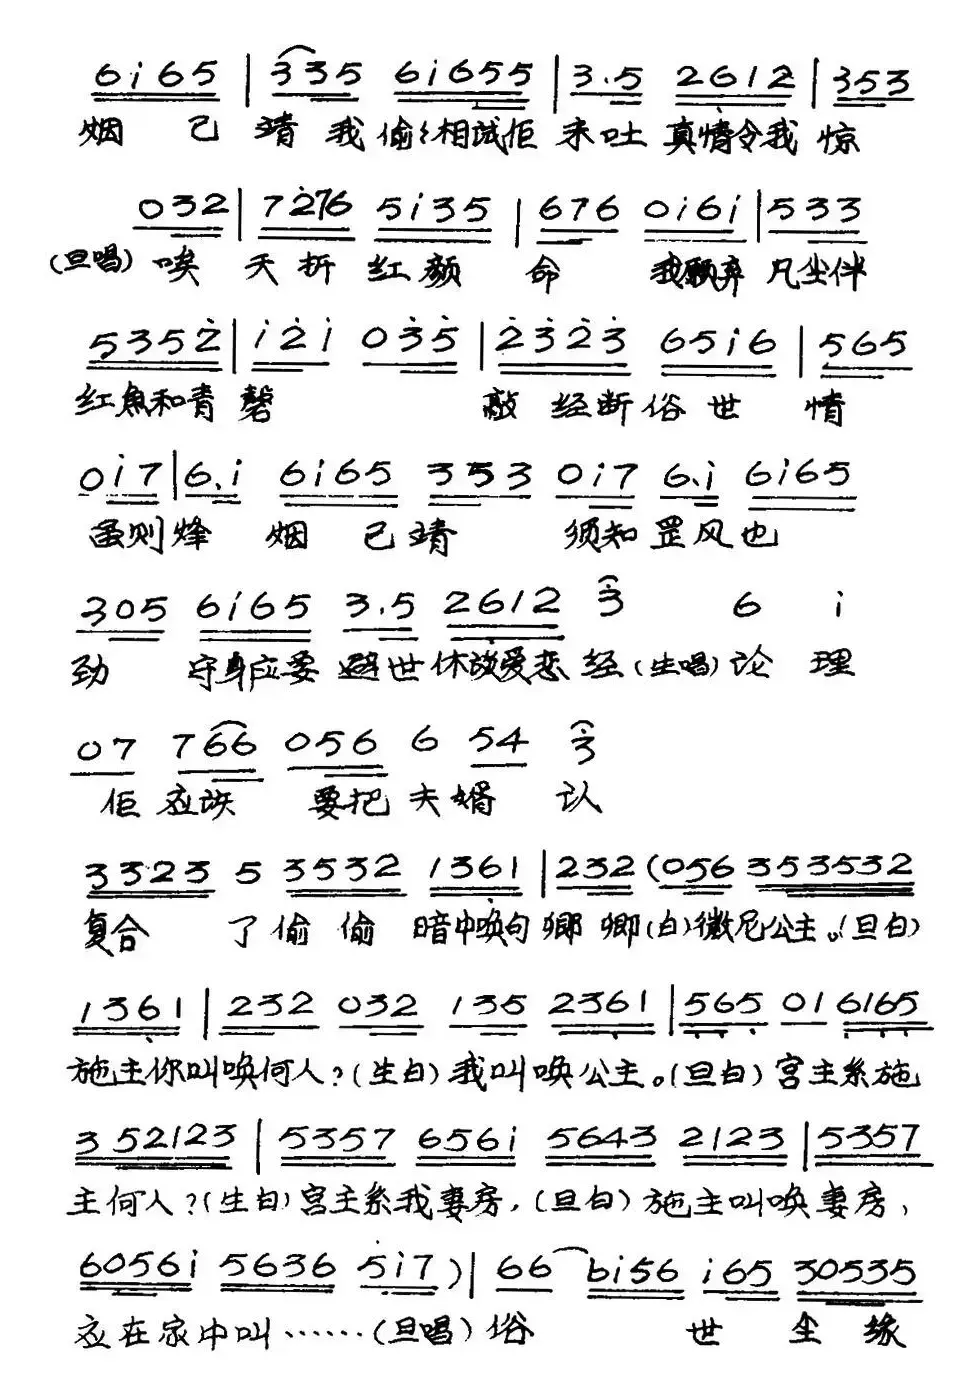 6i65 | 335 6i655 | 3·5 2612 | 353
烟 已 靖 我 偷々相試佢 未吐 真情令我 惊
032 | 7276 5i35 | 676 0i6i | 533
(旦唱) 唉 夭 折 红 颜 命 我愿弃 凡尘伴
5352 | i2i 035 | 2323 65i6 | 565
红魚和青 磬 敲 经断俗世 情
0i7 | 6·i 6i65 353 0i7 6·i 6i65
虽则烽 烟 已靖 须知罡风也
305 6i65 3·5 2612 3 6 i
劲 守身应要 避世休談爱恋 经 (生唱) 论 理
07 766 056 6 54 3
佢 应该 要把 夫婿 认
3323 5 3532 1361 | 232 (056 353532
复合 了 偷 偷 暗中唤句卿 卿 (白) 微尼公主。(旦白)
1361 | 232 032 135 2361 | 565 01 6165
施主你叫唤何人？(生白) 我叫唤公主。(旦白) 宫主系施
352123 | 5357 656i 5643 2123 | 5357
主何人？(生白) 宫主系我妻房，(旦白) 施主叫唤妻房，
6056i 5636 5i7 ) | 66 6i56 i65 30535
应在家中叫…… (旦唱) 俗 世 尘 缘